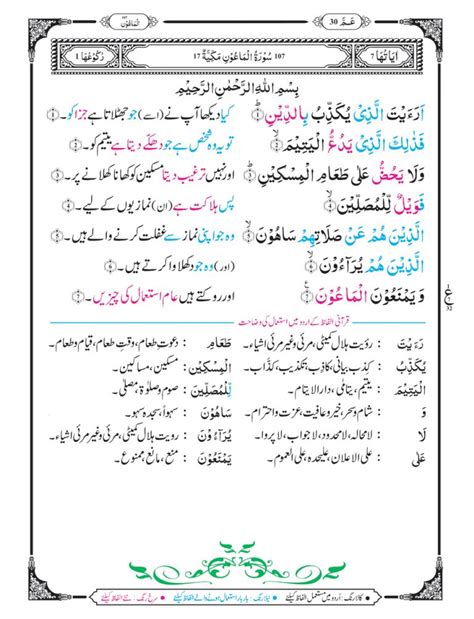 الماعون ١٠٧
عَمَّ 30
رُكُوعُهَا 1
107 سُوْرَةُ الْمَاعُوْنِ مَكِّيَّةٌ 17
اٰيَاتُهَا 7
بِسْمِ اللهِ الرَّحْمٰنِ الرَّحِيْمِ
اَرَءَيْتَ الَّذِىْ يُكَذِّبُ بِالدِّيْنِ ۱ کیا دیکھا آپ نے (اسے) جو جھٹلاتا ہے جزا کو۔ ۱
فَذٰلِكَ الَّذِىْ يَدُعُّ الْيَتِيْمَ ۲ تو یہ وہ شخص ہے جو دھکے دیتا ہے یتیم کو۔ ۲
وَلَا يَحُضُّ عَلٰى طَعَامِ الْمِسْكِيْنِ ۳ اور نہیں ترغیب دیتا مسکین کو کھانا کھلانے پر۔ ۳
فَوَيْلٌ لِّلْمُصَلِّيْنَ ۴ پس ہلاکت ہے (ان) نمازیوں کے لیے۔ ۴
الَّذِيْنَ هُمْ عَنْ صَلَاتِهِمْ سَاهُوْنَ ۵ وہ جو اپنی نماز سے غفلت کرنے والے ہیں۔ ۵
الَّذِيْنَ هُمْ يُرَآءُوْنَ ۶ (اور) وہ جو دکھلاوا کرتے ہیں۔ ۶
وَيَمْنَعُوْنَ الْمَاعُوْنَ ۷ اور روکتے ہیں عام استعمال کی چیزیں۔ ۷
ع
32
قرآنی الفاظ کے اردو میں استعمال کی وضاحت
رَءَيْتَ : رویت ہلال کمیٹی، مرئی و غیر مرئی اشیاء۔ طَعَامِ : دعوت طعام، وقت طعام، قیام و طعام۔
يُكَذِّبُ : کذب بیانی، کاذب، تکذیب، کذاب۔ الْمِسْكِيْنِ : مسکین، مساکین۔
الْيَتِيْمَ : یتیم، یتامی، دارالایتام۔ لِّلْمُصَلِّيْنَ : صوم و صلوٰۃ، مصلی۔
وَ : شام و سحر، خیر و عافیت، عزت و احترام۔ سَاهُوْنَ : سہواً، سجدہ سہو۔
لَا : لامحالہ، لامحدود، لاجواب، لا پروا۔ يُرَآءُوْنَ : رویت ہلال کمیٹی، مرئی و غیر مرئی اشیاء۔
عَلٰى : علی الاعلان، علیحدہ، علی العموم۔ يَمْنَعُوْنَ : منع، مانع، ممنوع۔
• کالا رنگ: اُردو میں مستعمل الفاظ کیلئے • نیلا رنگ: بار بار استعمال ہونے والے الفاظ کیلئے • سرخ رنگ: نئے الفاظ کیلئے